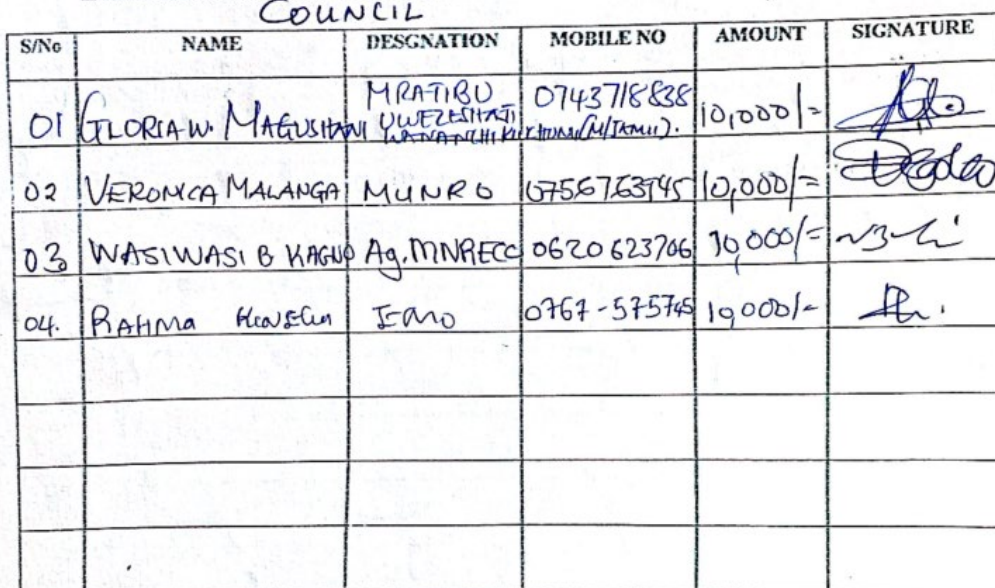 COUNCIL
S/No NAME DESGNATION MOBILE NO AMOUNT SIGNATURE
01 GLORIA W. MAGUSHANI MRATIBU UWEZESHAJI WANANCHI KIUCHUMI (M/JAMII). 0743718838 10,000/=
02 VERONICA MALANGA MUNRO 0756763945 10,000/=
03 WASIWASI B Ag. MNRECC 0620623706 10,000/=
04. RAHMA 0767-575745 10,000/=